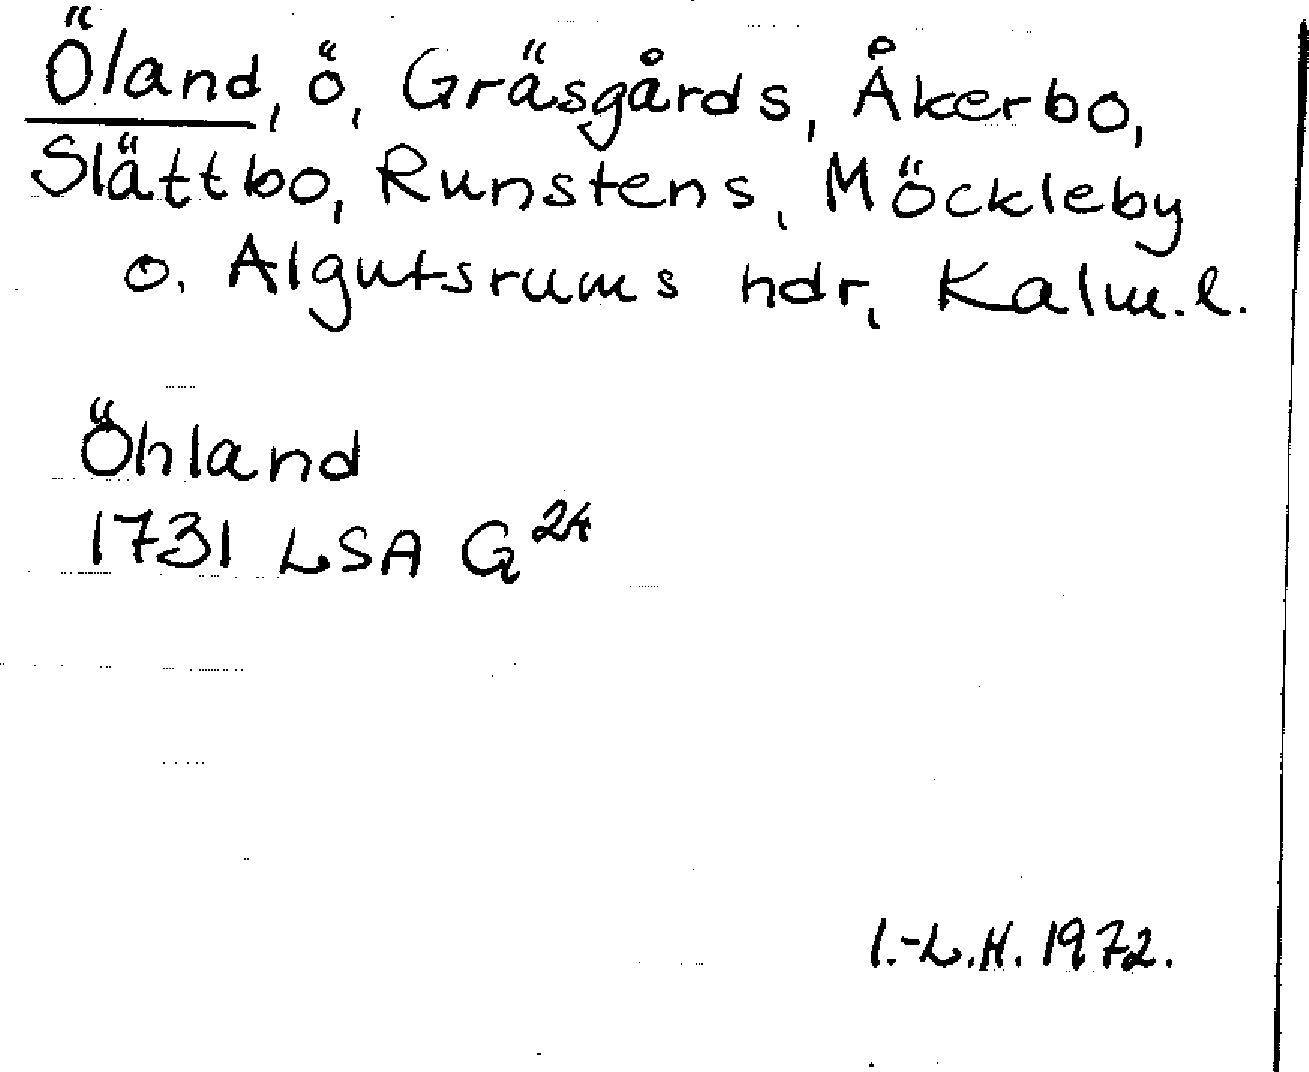 Öland, ö, Gräsgårds, Åkerbo,
Slättbo, Runstens, Möckleby
o. Algutsrums hdr, Kalm. l.
Öhland
1731 LSA G 24
I.-L.H. 1972.